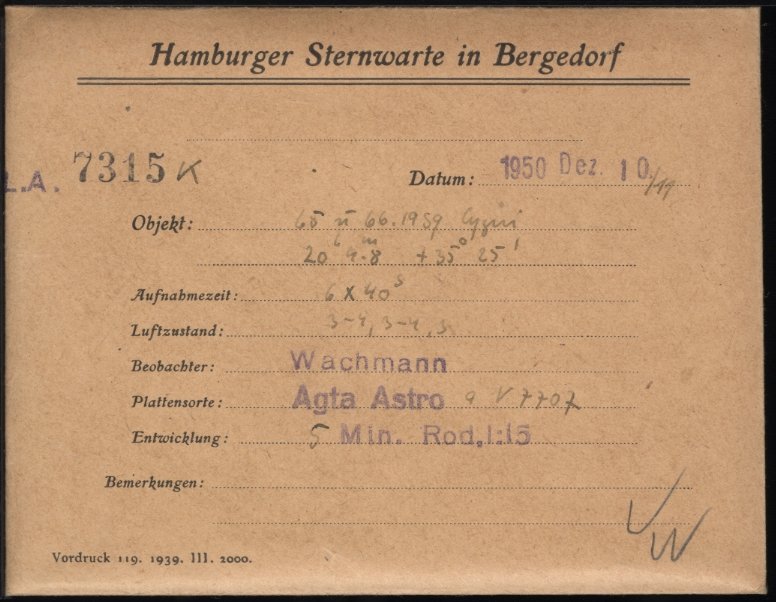 Hamburger Sternwarte in Bergedorf
L.A. 7315 K
Datum: 1950 Dez. 10/11
Objekt: 65 u 66.1939 Cygni
20 h 9.m8 +35° 25'
Aufnahmezeit: 6 x 40 s
Luftzustand: 3-4, 3-4, 3
Beobachter: Wachmann
Plattensorte: Agfa Astro V 7707
Entwicklung: 5 Min. Rod,1:15
Bemerkungen:
VW
Vordruck 119. 1939. III. 2000.